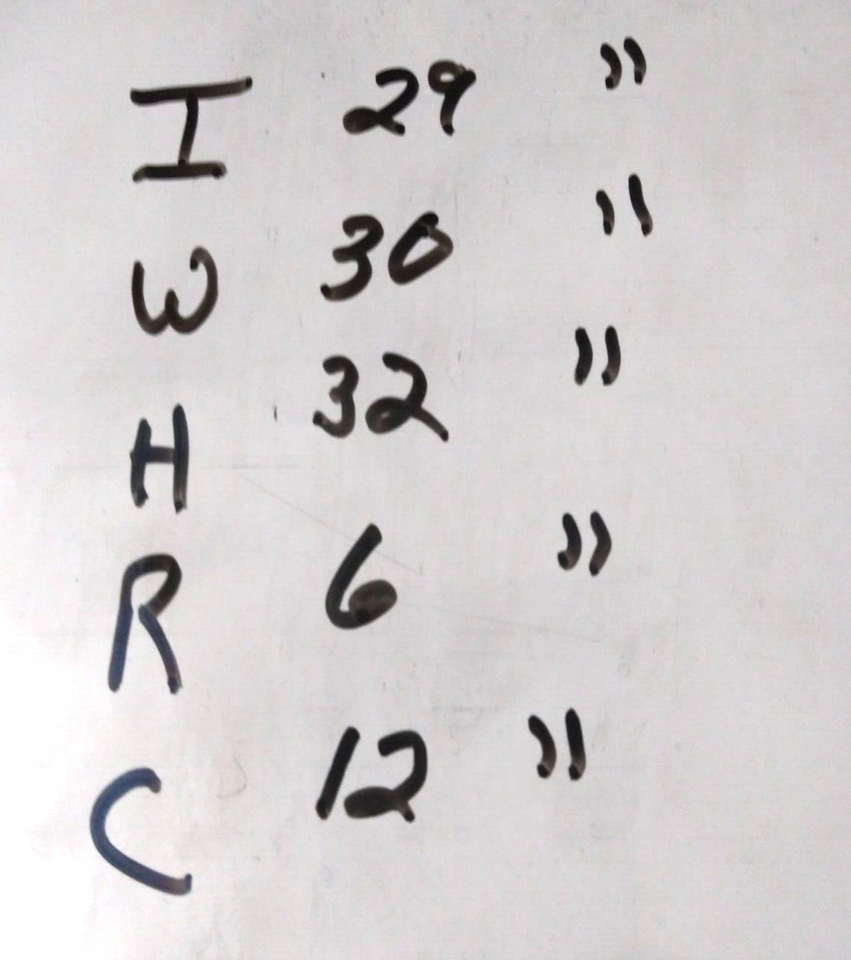 I 29 "
W 30 "
H 32 "
R 6 "
C 12 "